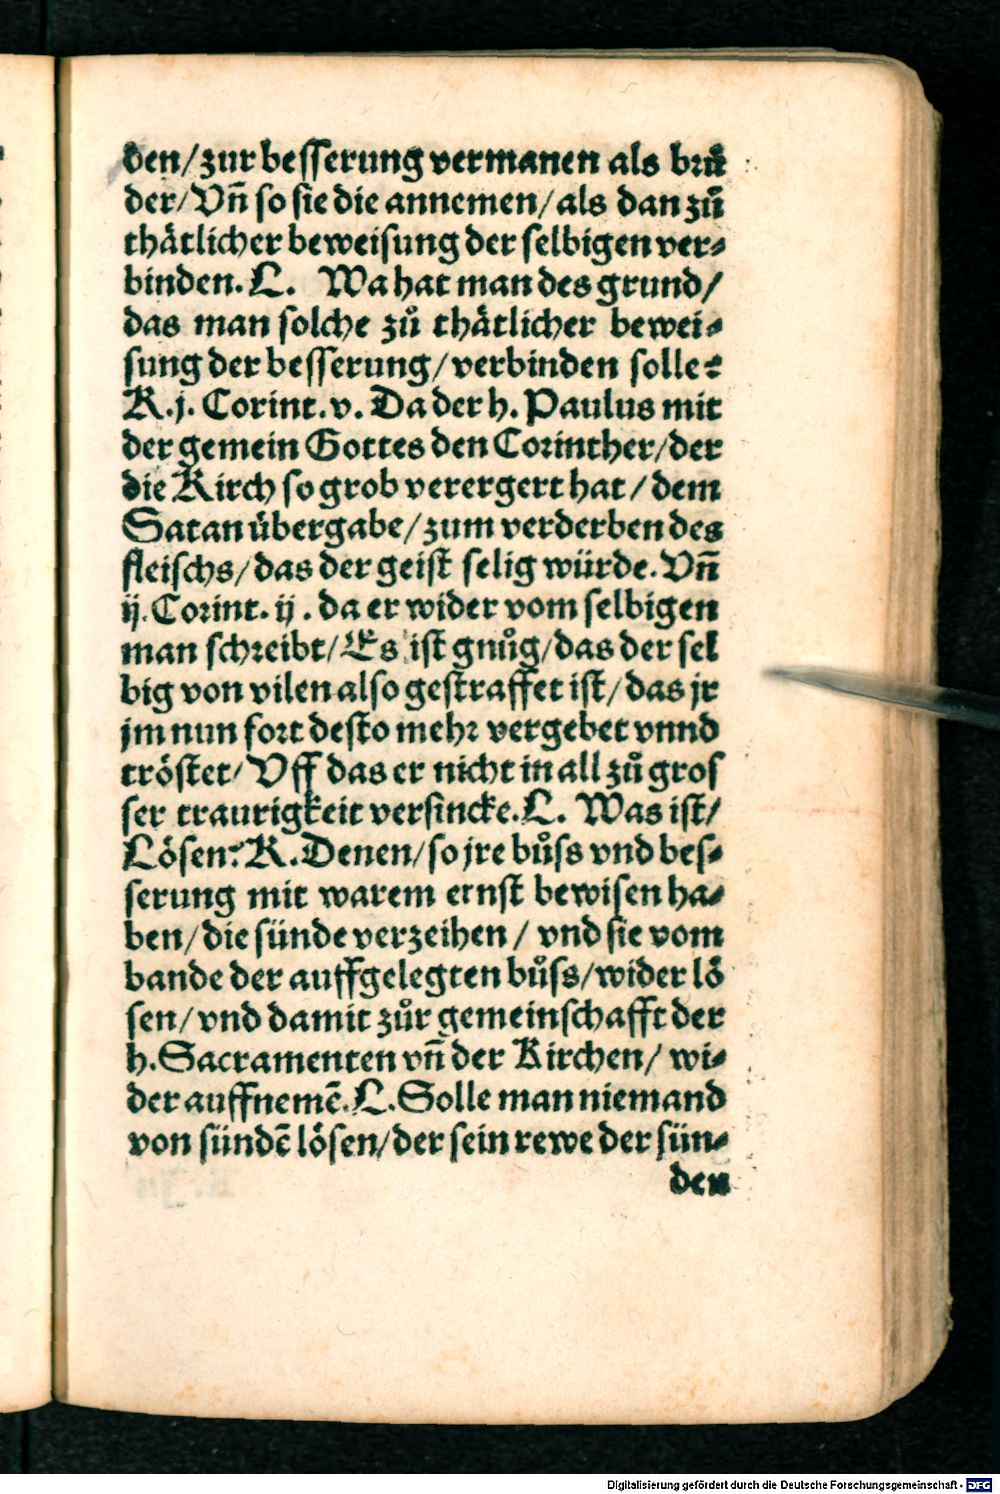 den/ zur besserung vermanen als bruͤ
der/ Vn̄ so sie die annemen/ als dan zuͦ
thaͤtlicher beweisung der selbigen ver⸗
binden. L. Wa hat man des grund/
das man solche zuͦ thaͤtlicher bewei⸗
sung der besserung/ verbinden solle?
K. j. Corint. v. Da der h. Paulus mit
der gemein Gottes den Corinther/ der
die Kirch so grob verergert hat/ dem
Satan uͤbergabe/ zum verderben des
fleischs/ das der geist selig wuͤrde. Vn̄
ij. Corint. ij. da er wider vom selbigen
man schreibt/ Es ist gnuͦg/ das der sel
big von vilen also gestraffet ist/ das jr
jm nun fort desto mehr vergebet vnnd
troͤstet/ Vff das er nicht in all zuͦ gros
ser traurigkeit versincke. L. Was ist/
Loͤsen? K. Denen/ so jre buͦss vnd bes⸗
serung mit warem ernst bewisen ha⸗
ben/ die suͤnde verzeihen/ vnd sie vom
bande der auffgelegten buͦss/ wider loͤ
sen/ vnd damit zuͦr gemeinschafft der
h. Sacramenten vn̄ der Kirchen/ wi⸗
der auffnemē. L. Solle man niemand
von suͤndē loͤsen/ der sein rewe der suͤn⸗
den
Digitalisierung gefördert durch die Deutsche Forschungsgemeinschaft - DFG